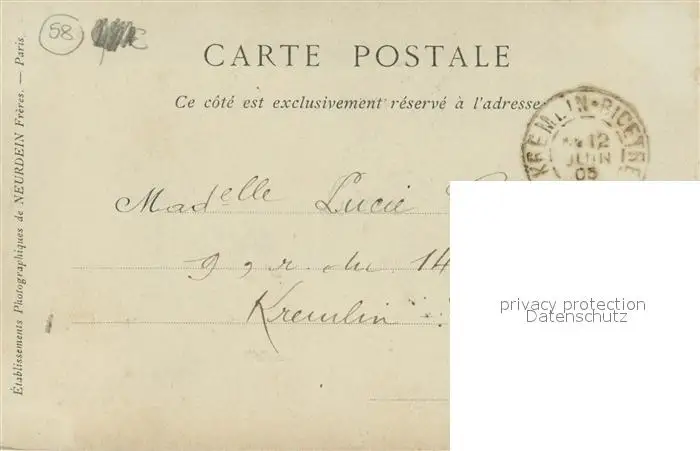 58
CARTE POSTALE
Ce côté est exclusivement réservé à l'adresse
KREMLIN-BICETRE
12
JUIN
05
Madelle Lucie
99 r. du 14
Kremlin
privacy protection
Datenschutz
Établissements Photographiques de NEURDEIN Frères. — Paris